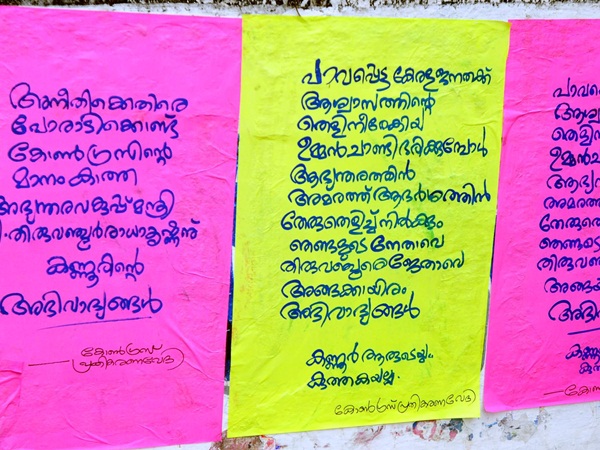 അനീതിക്കെതിരെ
പോരാടിക്കൊണ്ട്
കോൺഗ്രസിന്റെ
മാനംകാത്ത
അഭ്യന്തരവകുപ്പ് മന്ത്രി
തിരുവഞ്ചൂർരാധാകൃഷ്ണന്
കണ്ണൂരിന്റെ
അഭിവാദ്യങ്ങൾ
കോൺഗ്രസ്
പ്രതികരണവേദി
പാവപ്പെട്ട കേരളജനതക്ക്
ആശ്വാസത്തിന്റെ
തെളിനീരേകിയ
ഉമ്മൻചാണ്ടി ഭരിക്കുമ്പോൾ
ആഭ്യന്തരത്തിൻ
അമരത്ത് ആദർശത്തിൻ
തേരുതെളിച്ച് നിൽക്കും
ഞങ്ങളുടെ നേതാവെ
തിരുവഞ്ചൂരെ ജേതാവെ
അങ്ങേക്കായിരം
അഭിവാദ്യങ്ങൾ
കണ്ണൂർ ആരുടെയും
കുത്തകയല്ല
കോൺഗ്രസ് പ്രതികരണവേദി